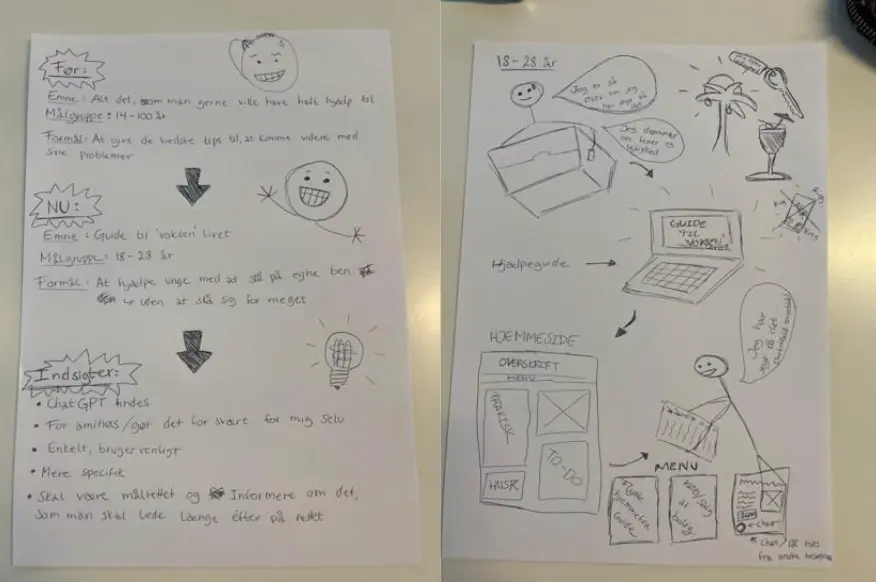 Før:
Emne: Alt det, som man gerne ville have haft hjælp til
Målgruppe: 14-100 år
Formål: At give de bedste tips til, at komme videre med
sine problemer
NU:
Emne: Guide til 'voksen' livet
Målgruppe: 18-28 år
Formål: At hjælpe unge med at stå på egne ben
uden at slå sig for meget
Indsigter:
• ChatGPT findes
• For ambitiøs/gør det for svært for mig selv
• Enkelt, brugervenligt
• Mere specifik
• Skal være målrettet og Informere om det,
som man skal lede længe efter på nettet
18-28 år
Jeg er så
Jeg drømmer
om
GUIDE
TIL
VOKSEN
Hjælpeguide
Jeg har
HJEMMESIDE
OVERSKRIFT
MENU
HUSK
TO-DO
MENU
Flytte
hjemmefra
Guide
Køb/salg
af
bolig
← chat
* Chat /
fra andre